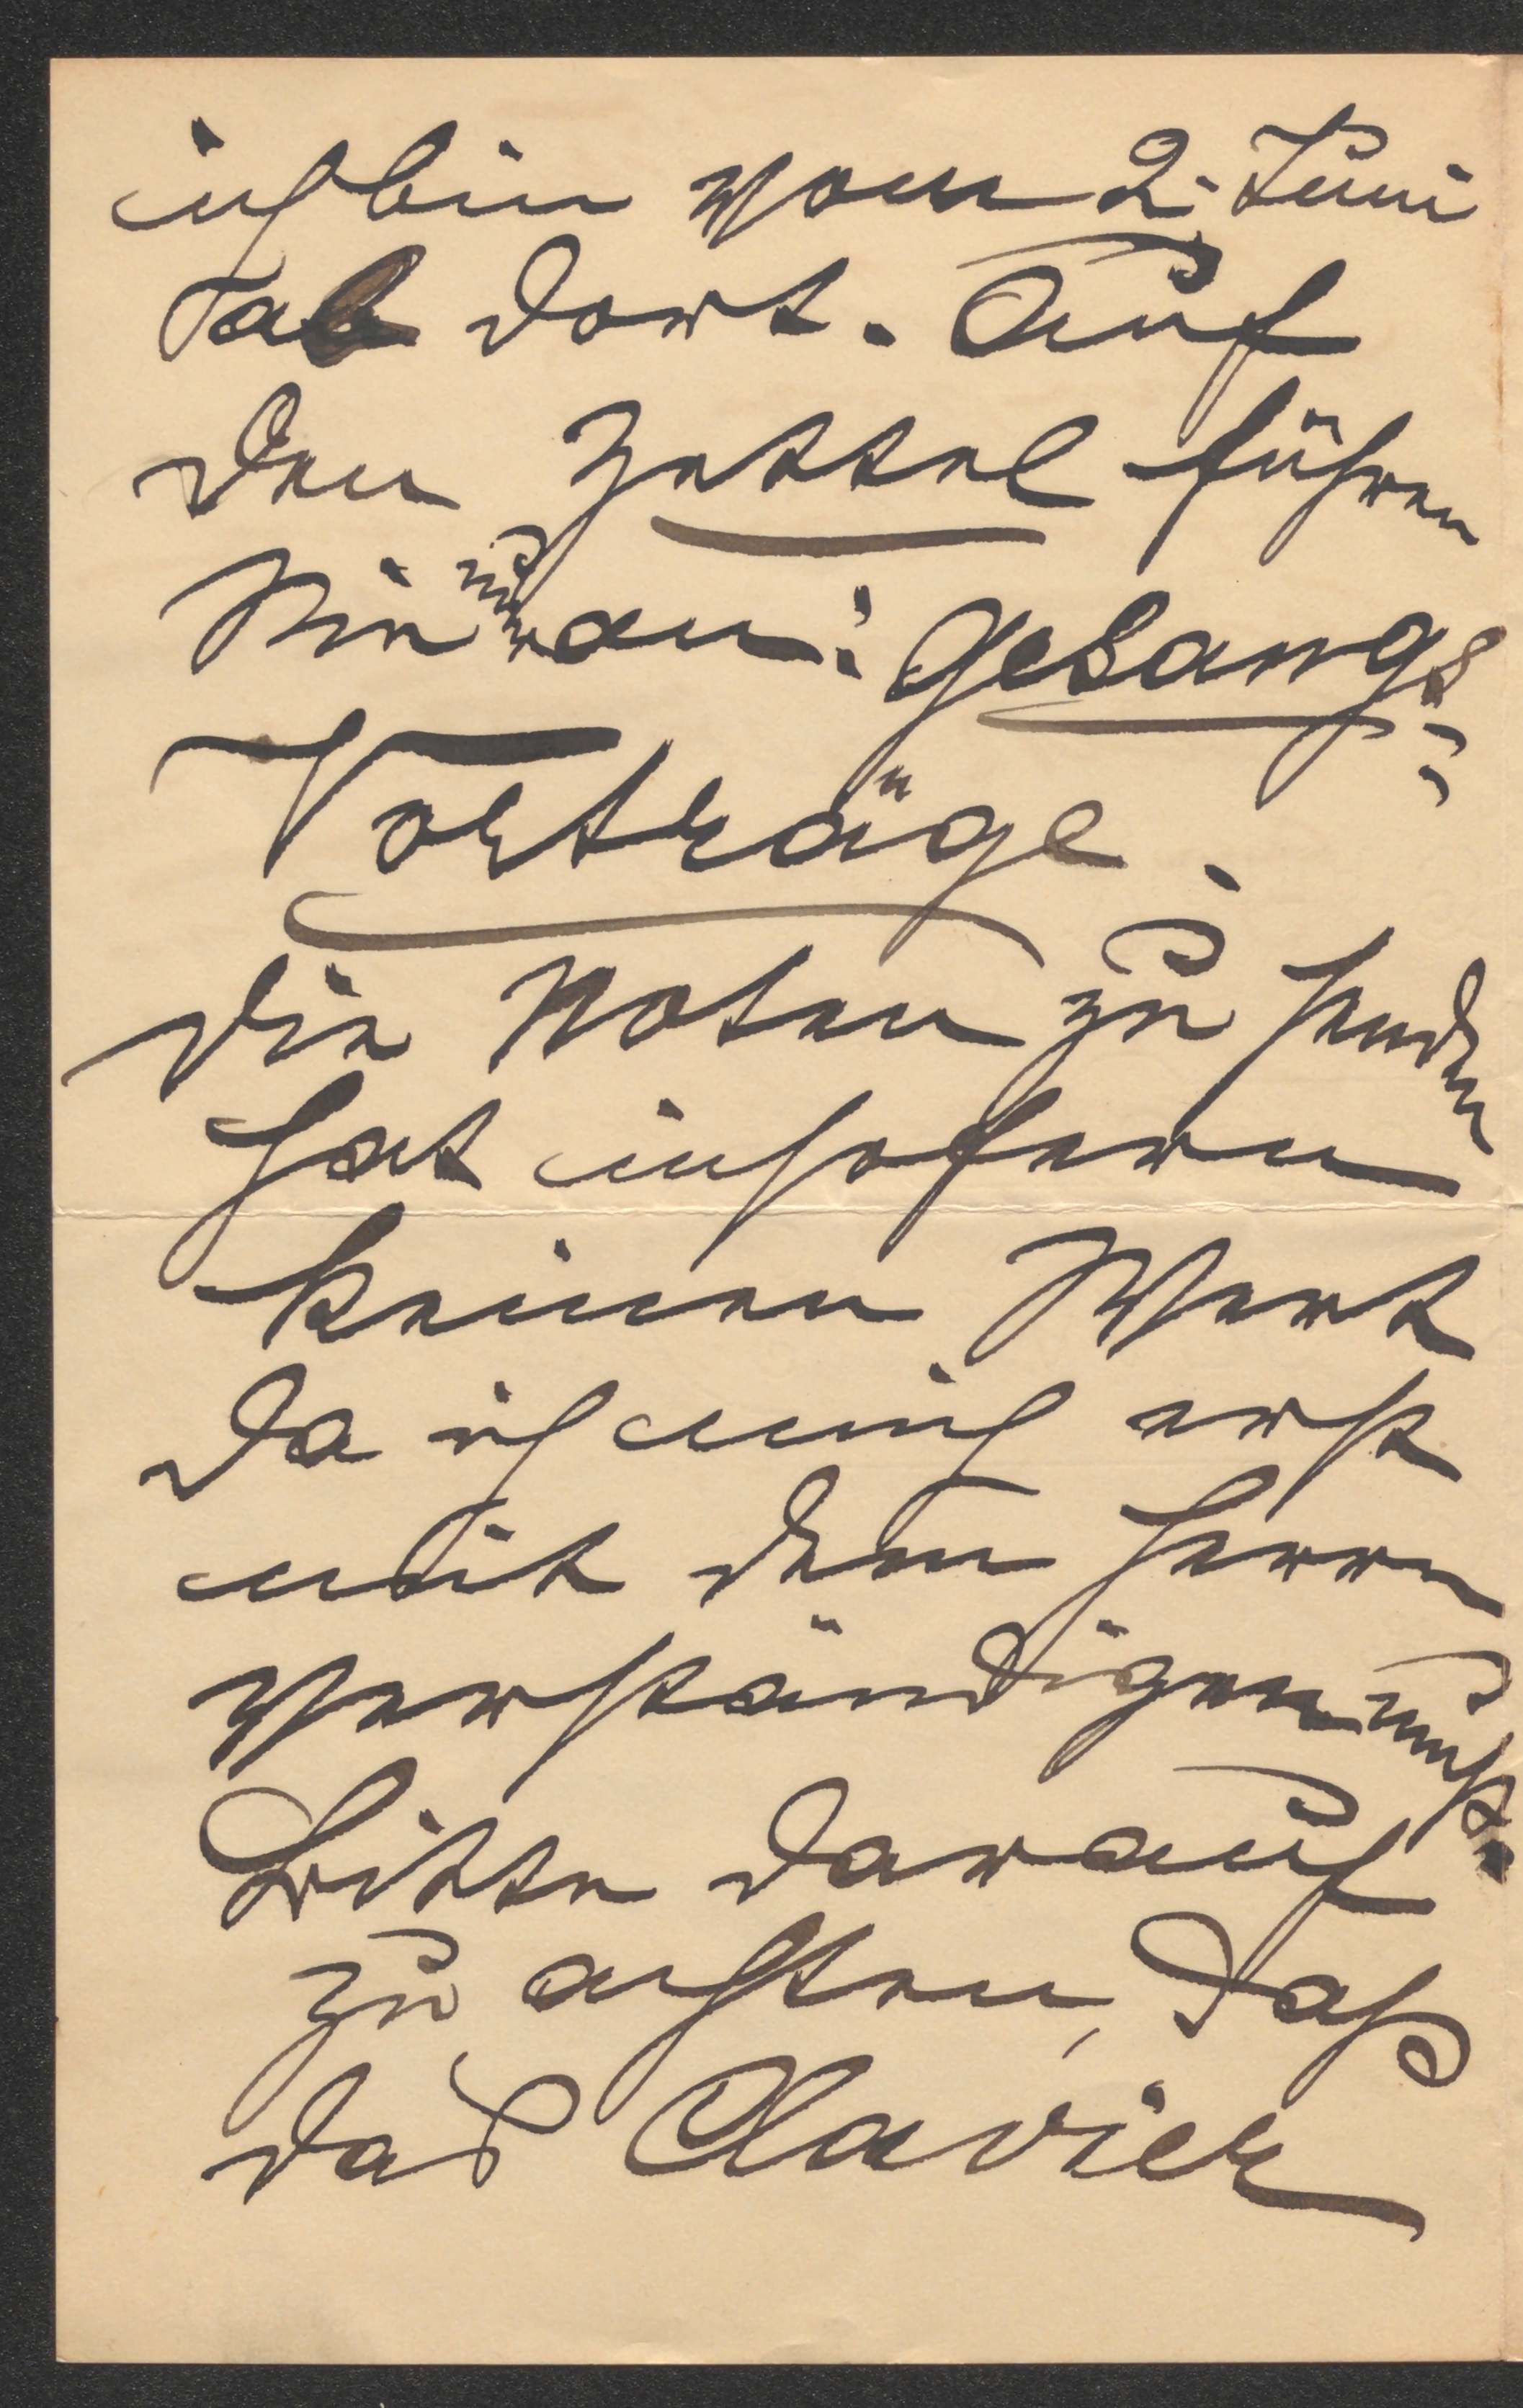 ich bin vom 2. Juni
ab dort. Auf
den Zettel führen
Sie nur an: Gesangs=
Vorträge.
Die Noten zu senden
hat insofern
keinen Wert
da ich mich erst
mit dem Herrn
verständigen muß.
Bitte darauf
zu achten, daß
das Clavier